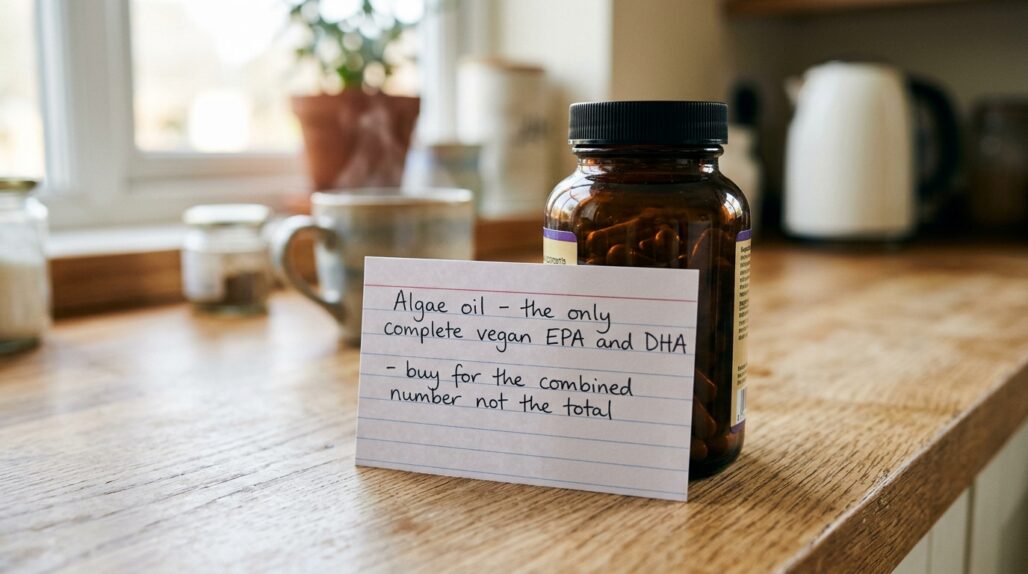 Algae oil - the only
complete vegan EPA and DHA
- buy for the combined
number not the total